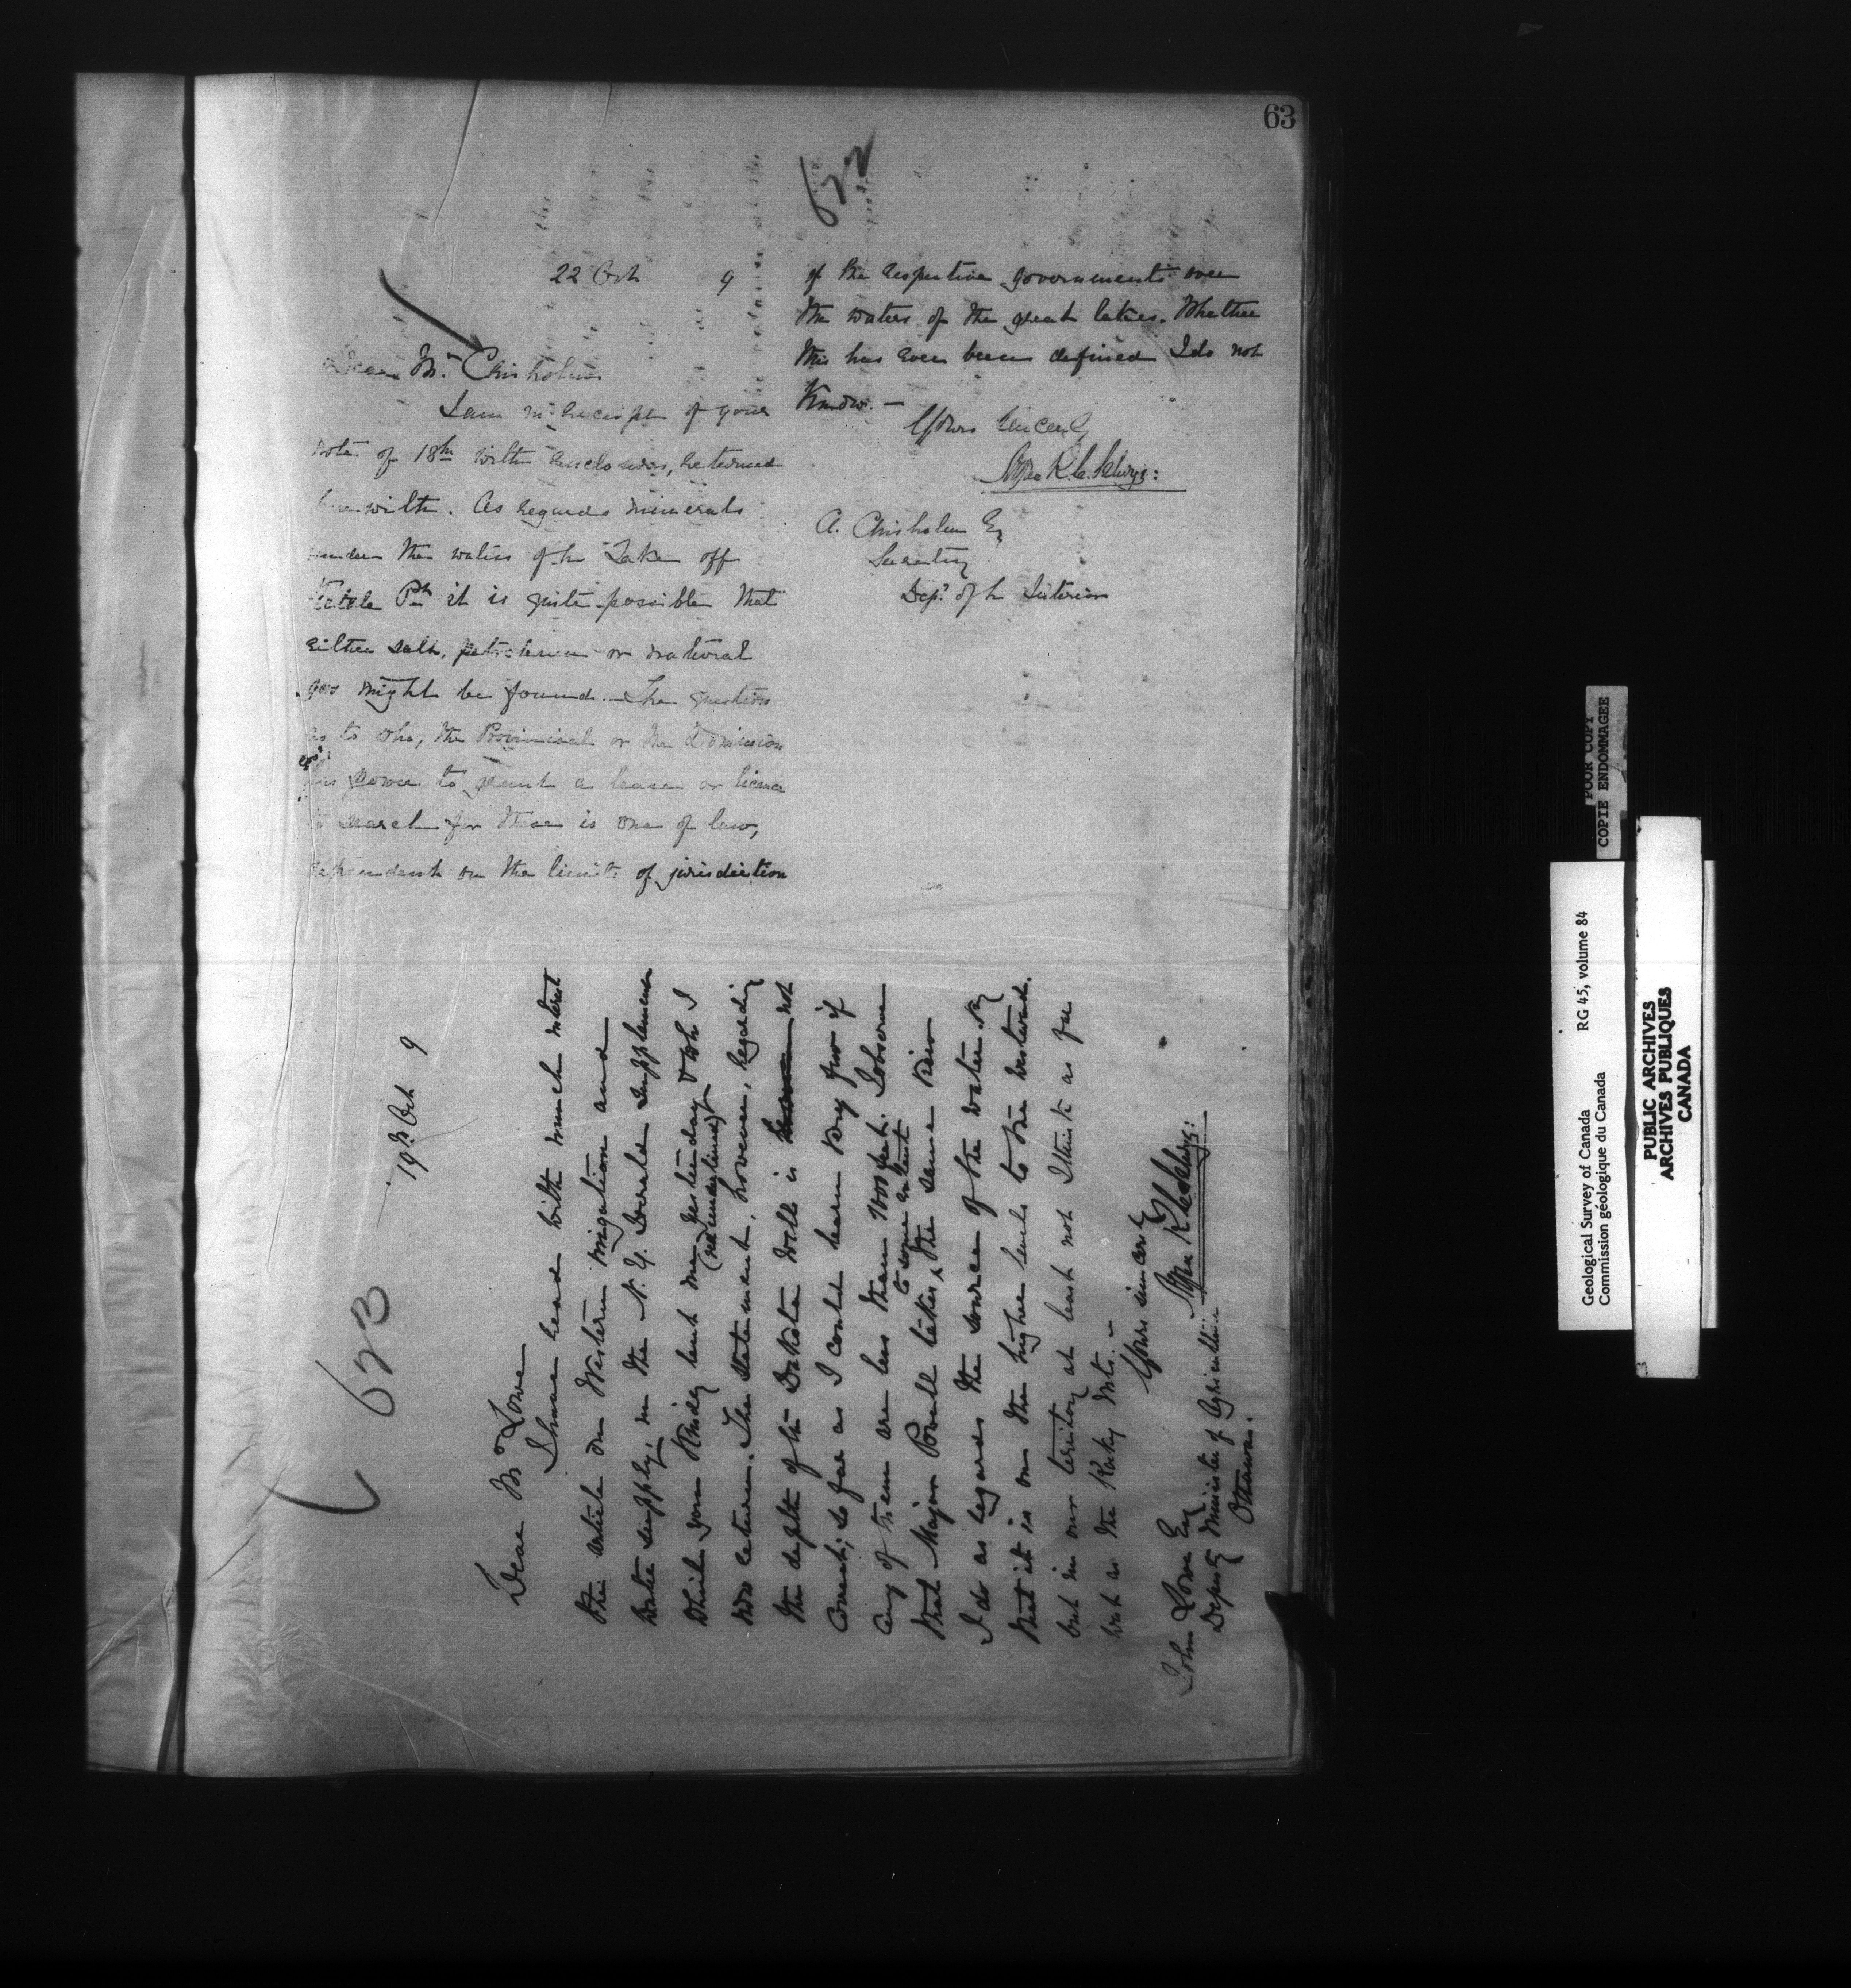 63
522
22 Oct 9
Dear Mr. Chisholm
I am in receipt of your
note of 18th with enclosures, returned
herewith. As regards minerals
under the waters of the Lake off
Kettle Pt. it is quite possible that
either salt, petroleum or natural
gas might be found. The question
as to who, the Provincial or the Dominion
govt.
has power to grant a lease or license
to search for these is one of law,
dependent on the limits of jurisdiction
of the respective governments over
the waters of the great lakes. Whether
this has ever been defined I do not
Know. —
Yours Sincerely
Alfred R. C. Selwyn
A. Chisholm Esq
Secretary
Dept. of the Interior
523
19th Oct 9
Dear Mr. Lowe
I have read with much interest
the article on Western irrigation and
water supply, in the N. Y. Supplement
which you Kindly lent me yesterday & wh. I
(red underlined)
now return. The statement, however, regarding
the depth of the Dakota wells is not
correct; so far as I could learn very few if
any of them are less than 700 feet. I observe
to some extent
that Major Powell takes ^ the same view
I do as regards the source of the water viz
that it is on the higher levels to the westward.
but in our territory at least not I think as far
west as the Rocky Mts. —
Yours sincerely
Alfred R C Selwyn
John Lowe Esq
Deputy Minister of Agriculture
Ottawa.
POOR COPY
COPIE ENDOMMAGEE
Geological Survey of Canada RG 45, volume 84
Commission géologique du Canada
PUBLIC ARCHIVES
ARCHIVES PUBLIQUES
CANADA